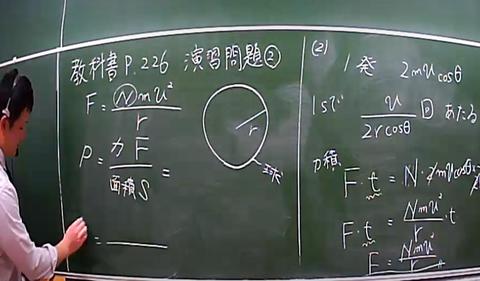 教科書P.226 演習問題②
F = Nmu²/r
P = 力 F/面積 S =
=
r
(2)
1発 2mucosθ
1sで u/2rcosθ 回 あたる
力積
F・t = N・2mucosθ
F・t = Nmu²/r・t
F = Nmu²/r